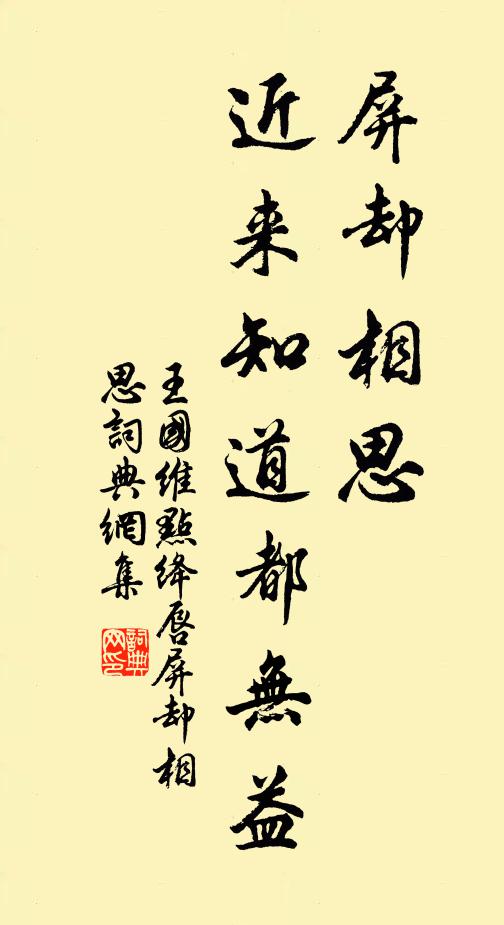 屏却相思
近来知道都無益
王國維點绛唇屏却相
思詞典網集
詞典
网印